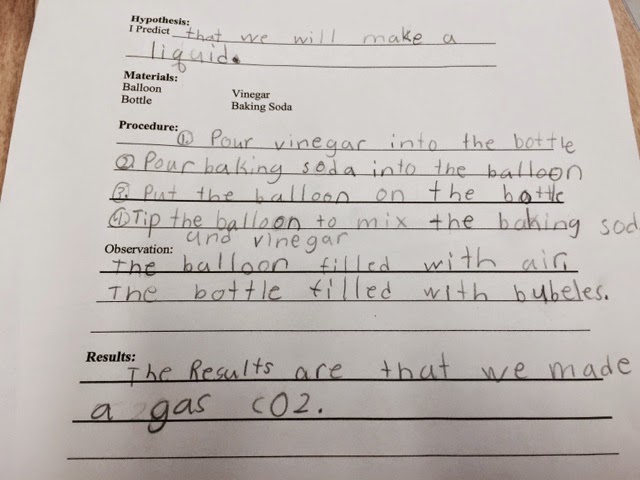 Hypothesis:
I Predict that we will make a
liquid.
Materials:
Balloon
Bottle
Vinegar
Baking Soda
Procedure:
① Pour vinegar into the bottle
② Pour baking soda into the balloon
③ Put the balloon on the bottle
④ Tip the balloon to mix the baking sod
and vinegar
Observation:
The balloon filled with air.
The bottle filled with bubeles.
Results:
The Results are that we made
a gas CO2.